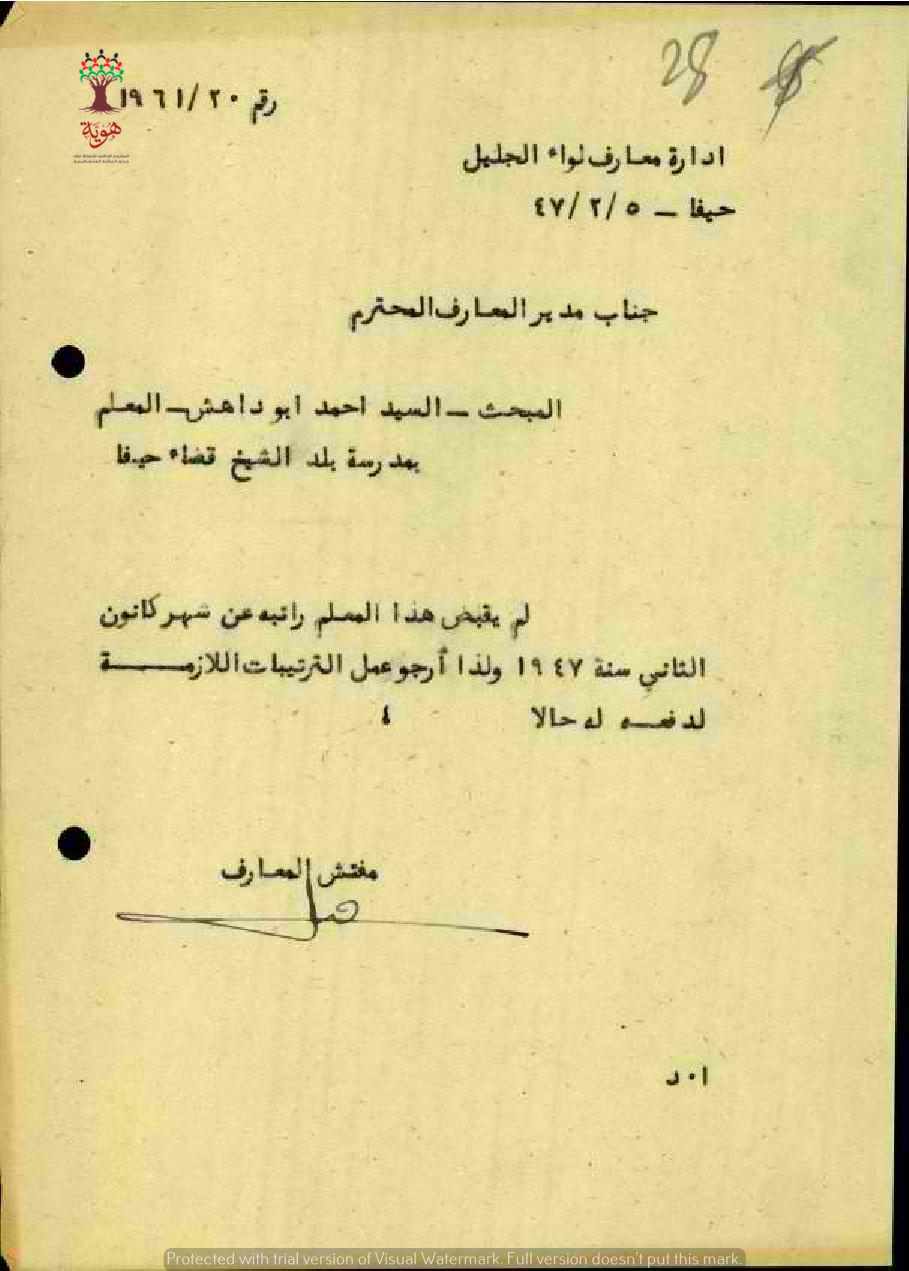 28
رقم ١٩٦١/٢٠
هوية
ادارة معارف لواء الجليل
حيفا – ٤٧/٢/٥
جناب مدير المعارف المحترم
المبحث – السيد احمد ابو داهش – المعلم
بمدرسة بلد الشيخ قضاء حيفا
لم يقبض هذا المعلم راتبه عن شهر كانون
الثاني سنة ١٩٤٧ ولذا أرجو عمل الترتيبات اللازمــــة
لدفعـه له حالا ٤
مفتش المعارف
ا٠د
Protected with trial version of Visual Watermark. Full version doesn't put this mark.